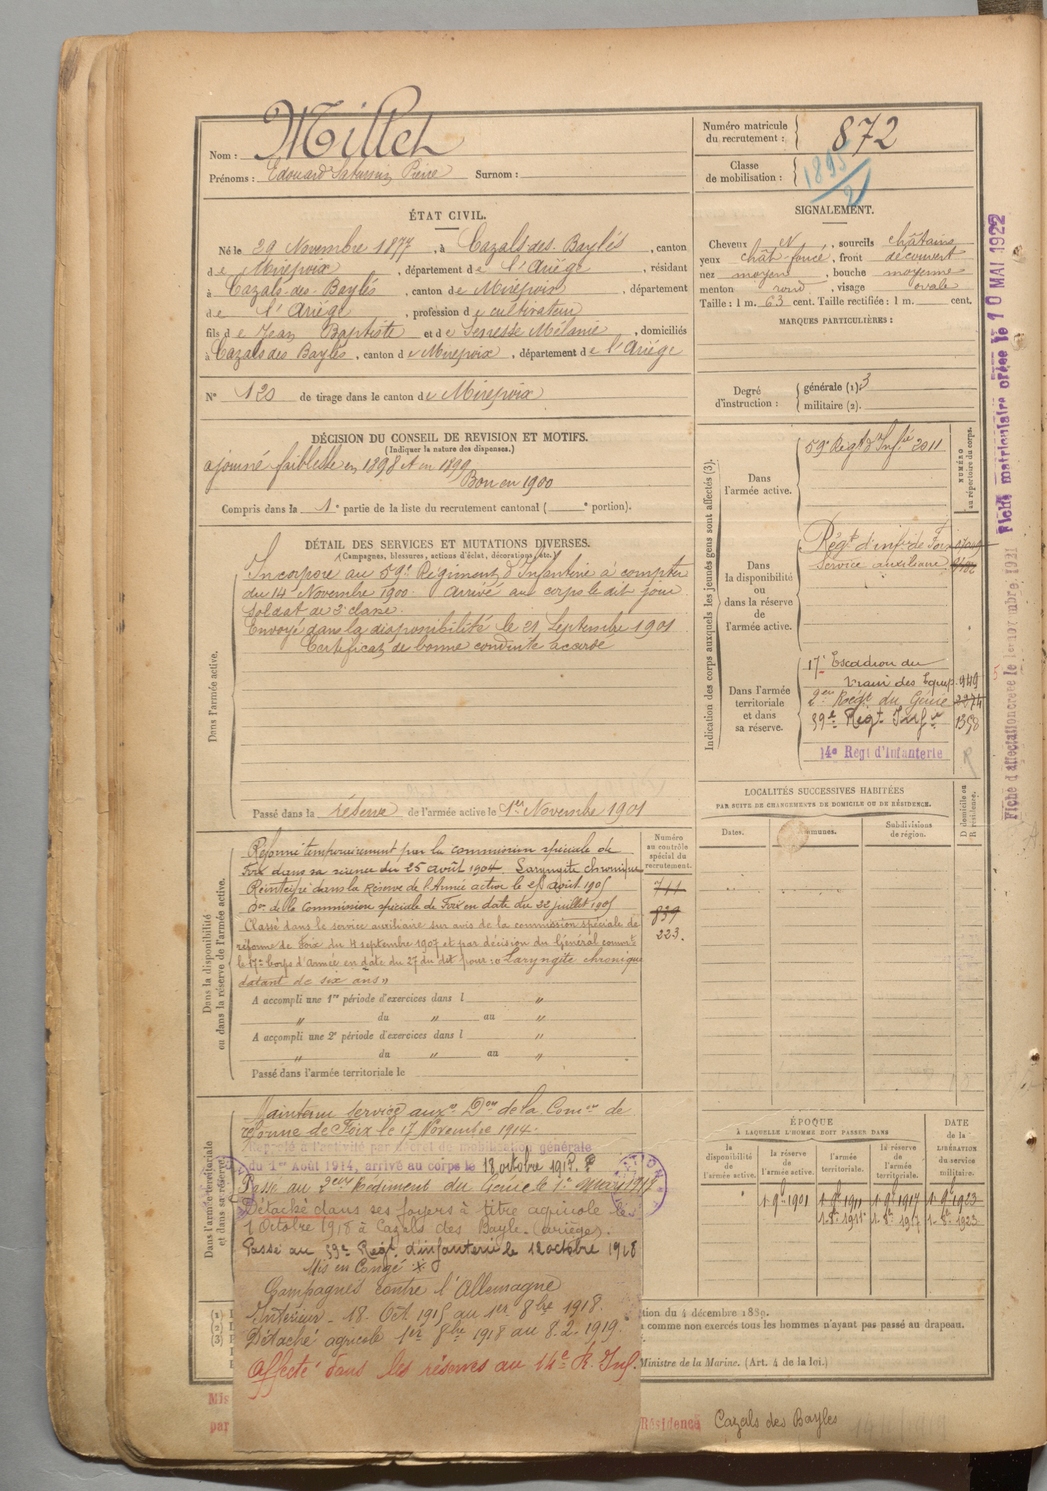 Nom : Millet
Prénoms : Edouard Saturnin Pierre Surnom :
Numéro matricule du recrutement : 872
Classe de mobilisation : 1895/2
ÉTAT CIVIL.
Né le 29 Novembre 1877, à Cazals-des-Baylés, canton
de Mirepoix, département de l'Ariége, résidant
à Cazals-des-Baylés, canton de Mirepoix, département
de l'Ariége, profession de cultivateur
fils de Jean Baptiste et de Mélanie, domiciliés
à Cazals des Baylés, canton de Mirepoix, département de l'Ariége
N° 120 de tirage dans le canton de Mirepoix
SIGNALEMENT.
Cheveux N, sourcils châtains
yeux chât-foncé, front découvert
nez moyen, bouche moyenne
menton rond, visage ovale
Taille : 1 m. 63 cent. Taille rectifiée : 1 m. cent.
MARQUES PARTICULIÈRES :
Degré d'instruction : générale (1). 3
militaire (2).
DÉCISION DU CONSEIL DE REVISION ET MOTIFS.
(Indiquer la nature des dispenses.)
ajourné faiblesse en 1898 et en 1899
Bon en 1900
Compris dans la 1e partie de la liste du recrutement cantonal ( e portion).
DÉTAIL DES SERVICES ET MUTATIONS DIVERSES.
(Campagnes, blessures, actions d'éclat, décorations, etc.)
Dans l'armée active.
Incorporé au 59e Régiment d'Infanterie à compter
du 14 Novembre 1900. Arrivé au corps le dit jour
soldat de 2e classe.
Envoyé dans la disponibilité le 21 Septembre 1901
Certificat de bonne conduite accordé
Passé dans la réserve de l'armée active le 1er Novembre 1901
Indication des corps auxquels les jeunes gens sont affectés (3).
NUMÉRO au répertoire du corps.
Dans l'armée active.
59e Régt d'Infie 2011
Dans la disponibilité ou dans la réserve de l'armée active.
Régt d'infie de Foix
Service auxiliaire
Dans l'armée territoriale et dans sa réserve.
17e Escadron du
train des Equip. 949
2eme Régt du Génie 2274
39e Régt Infie 1358
14e Régt d'Infanterie
R
LOCALITÉS SUCCESSIVES HABITÉES
PAR SUITE DE CHANGEMENTS DE DOMICILE OU DE RÉSIDENCE.
Dates. Communes. Subdivisions de région. D domicile ou R résidence.
Dans la disponibilité ou dans la réserve de l'armée active.
Numéro au contrôle spécial du recrutement.
Réformé temporairement par la commission spéciale de
Foix dans sa séance du 25 août 1904. Laryngite chronique
Réintégré dans la Réserve de l'Armée active le 25 août 1905 711
Don de la Commission spéciale de Foix en date du 22 juillet 1905
839
Classé dans le service auxiliaire sur avis de la commission spéciale de
223.
réforme de Foix du 4 septembre 1907 et par décision du Général command
le 17e Corps d'Armée en date du 27 du dit pour : « Laryngite chronique
datant de six ans »
A accompli une 1re période d'exercices dans l "
" du " au "
A accompli une 2e période d'exercices dans l "
" du " au "
Passé dans l'armée territoriale le
Dans l'armée territoriale et dans sa réserve.
Maintenu service auxre Don de la Comon de
réforme de Foix le 17 Novembre 1914.
Rappelé à l'activité par décret de mobilisation générale
du 1er Août 1914, arrivé au corps le 18 octobre 1915.
Passé au 2eme Régiment du Génie le 1er Mars 1917
Détaché dans ses foyers à titre agricole le
1 Octobre 1918 à Cazals des Bayle. (ariège).
Passé au 39e Régt d'infanterie le 12 octobre 1918
Mis en Congé
Campagnes contre l'Allemagne
Intérieur - 18. Oct 1915 au 1er 8bre 1918.
Détaché agricole 1er 8bre 1918 au 8.2.1919.
Affecté dans les réserves au 14e R. Inf.
ÉPOQUE
À LAQUELLE L'HOMME DOIT PASSER DANS
la disponibilité de l'armée active. la réserve de l'armée active. l'armée territoriale. la réserve de l'armée territoriale. DATE de la LIBÉRATION du service militaire.
1.9e 1901 1.9e 1911 1.9e 1917 1.9e 1923
(1)
(2)
(3)
tion du 4 décembre 1889.
comme non exercés tous les hommes n'ayant pas passé au drapeau.
Ministre de la Marine. (Art. 4 de la loi.)
Mis
par
Résidence Cazals des Bayles
Fiche matriculaire créée le 10 MAI 1922